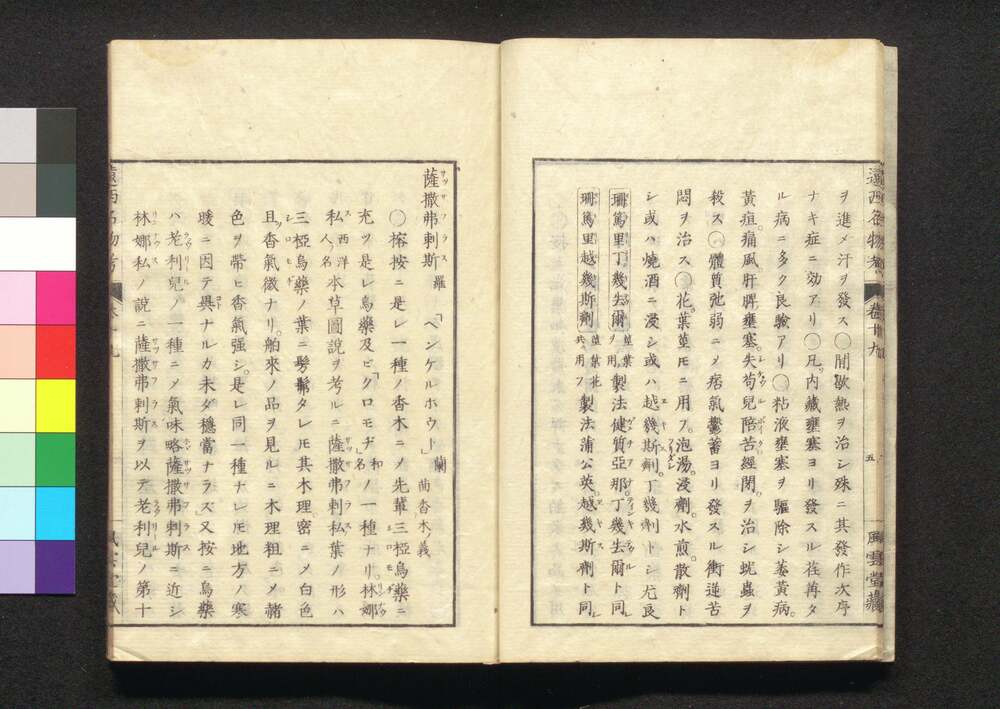 遠西名物考 卷十九 五 風雲堂藏
ヲ進メ汗ヲ發ス〇間歇熱ヲ治シ殊ニ其發作次序
ナキ症ニ効アリ〇凡ソ内臟壅塞ヨリ發スル荏苒タ
ル病ニ多ク良驗アリ〇粘液壅塞ヲ驅除シ萎黄病。
黄疸。痛風。肝脾壅塞。失苟兒陪苦。經閉ヲ治シ蚘蟲ヲ
殺ス〇體質弛弱ニメ痞氣鬱蓄ヨリ發スル衝逆苦
悶ヲ治ス〇花葉莖モニ用フ。泡湯。浸劑。水煎。散劑ト
シ或ハ燒酒ニ浸シ或ハ越幾斯劑。丁幾劑トシ尤良
珊篤里丁幾去爾 製法健質亞那。丁幾去爾ト同
珊篤里越幾斯劑 莖葉花共ニ用フ 製法蒲公英。越幾斯劑ト同
薩撒弗剌斯 羅 「ペンケルホウト」 蘭 蘭香木ノ義
〇榕按ニ是レ一種ノ香木ニメ先輩三椏烏藥ニ
充ツ是レ烏藥及ビ「クロモヂ」和名ノ一種ナリ。林娜
私西洋人名本草圖説ヲ考ルニ薩撒弗剌私葉ノ形ハ
三椏烏藥ノ葉ニ髣髴タレモ其木理密ニメ白色
且香氣微ナリ。舶來ノ品ヲ見ルニ木理粗ニメ赭
色ヲ帶ヒ香氣強シ。是レ同一種ナレモ地方ノ寒
暖ニ因テ異ナルカ未ダ穩當ナラズ又按ニ烏藥
ハ老利兒ノ一種ニメ氣味略薩撒弗剌斯ニ近シ
林娜私ノ説ニ薩撒弗剌斯ヲ以テ老利兒ノ第十